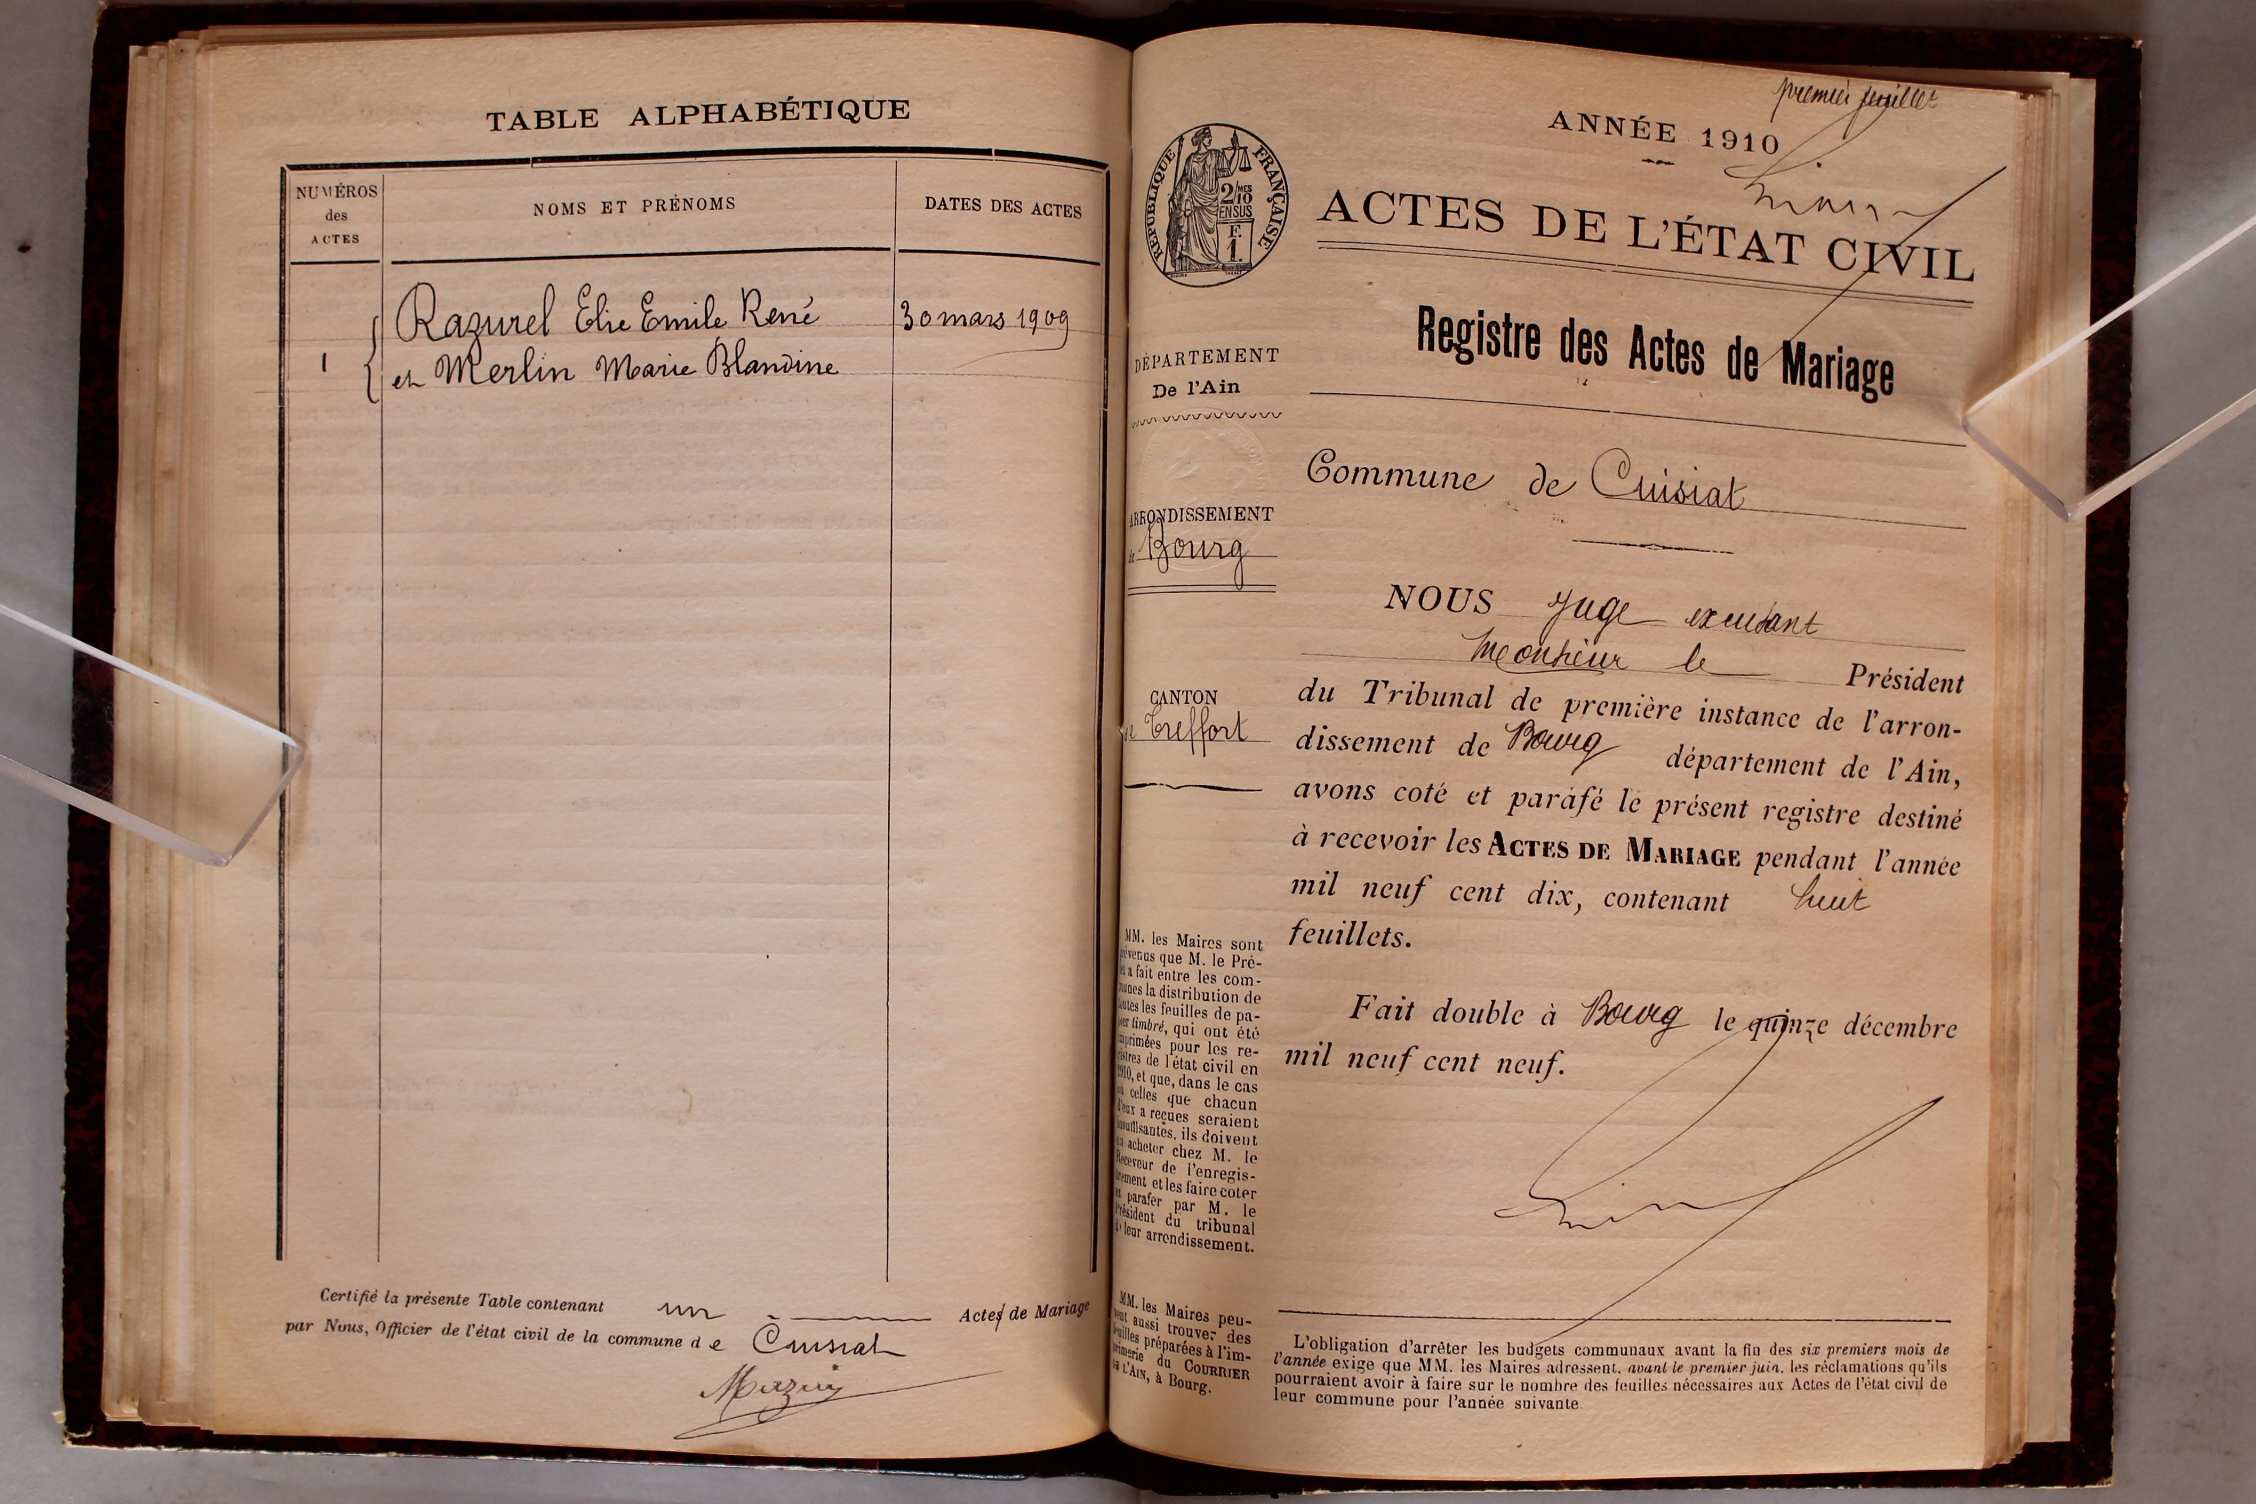 TABLE ALPHABÉTIQUE
NUMÉROS
des
ACTES
NOMS ET PRÉNOMS
DATES DES ACTES
Razurel Elie Emile René
30 mars 1909
1
et Merlin Marie Blandine
Certifié la présente Table contenant un Actes de Mariage
par Nous, Officier de l'état civil de la commune de Cuisiat
premier feuillet
ANNÉE 1910
RÉPUBLIQUE FRANÇAISE
2/10MES
EN SUS
F.
1.
ACTES DE L'ÉTAT CIVIL
Registre des Actes de Mariage
DÉPARTEMENT
De l'Ain
Commune de Cuisiat
ARRONDISSEMENT
de Bourg
CANTON
de Treffort
NOUS Juge
Monsieur le Président
du Tribunal de première instance de l'arron-
dissement de Bourg département de l'Ain,
avons coté et parafé le présent registre destiné
à recevoir les ACTES DE MARIAGE pendant l'année
mil neuf cent dix, contenant huit
feuillets.
Fait double à Bourg le quinze décembre
mil neuf cent neuf.
MM. les Maires sont
prévenus que M. le Pré-
fet a fait entre les com-
munes la distribution de
toutes les feuilles de pa-
pier timbré, qui ont été
imprimées pour les re-
gistres de l'état civil en
1910, et que, dans le cas
où celles que chacun
d'eux a reçues seraient
insuffisantes, ils doivent
en acheter chez M. le
Receveur de l'enregis-
trement et les faire coter
et parafer par M. le
Président du tribunal
de leur arrondissement.
MM. les Maires peu-
vent aussi trouver des
feuilles préparées à l'im-
primerie du COURRIER
DE L'AIN, à Bourg.
L'obligation d'arrêter les budgets communaux avant la fin des six premiers mois de
l'année exige que MM. les Maires adressent, avant le premier juin, les réclamations qu'ils
pourraient avoir à faire sur le nombre des feuilles nécessaires aux Actes de l'état civil de
leur commune pour l'année suivante.